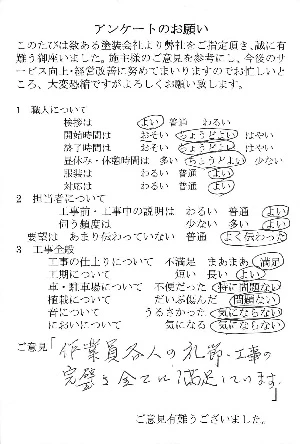 アンケートのお願い
このたびは数ある塗装会社より弊社をご指定頂き、誠に有
難う御座いました。施主様のご意見を参考にし、今後のサ
ービス向上・経営改善に努めてまいりますのでお忙しいと
ころ、大変恐縮ですがよろしくお願い致します。
1 職人について
挨拶は よい 普通 わるい
開始時間は おそい ちょうどよい はやい
終了時間は おそい ちょうどよい はやい
昼休み・休憩時間は 多い ちょうどよい 少ない
服装は わるい 普通 よい
対応は わるい 普通 よい
2 担当者について
工事前・工事中の説明は わるい 普通 よい
伺う頻度は 少ない 多い よい
要望は あまり伝わっていない 普通 よく伝わった
3 工事全般
工事の仕上りについて 不満足 まあまあ 満足
工期について 短い 長い よい
車・駐車場について 不便だった 特に問題ない
植栽について だいぶ傷んだ 問題ない
音について うるさかった 気にならない
においについて 気になる 気にならない
ご意見「作業員各人の礼節・工事の
完璧を全てに満足しています。
ご意見有難うございました。